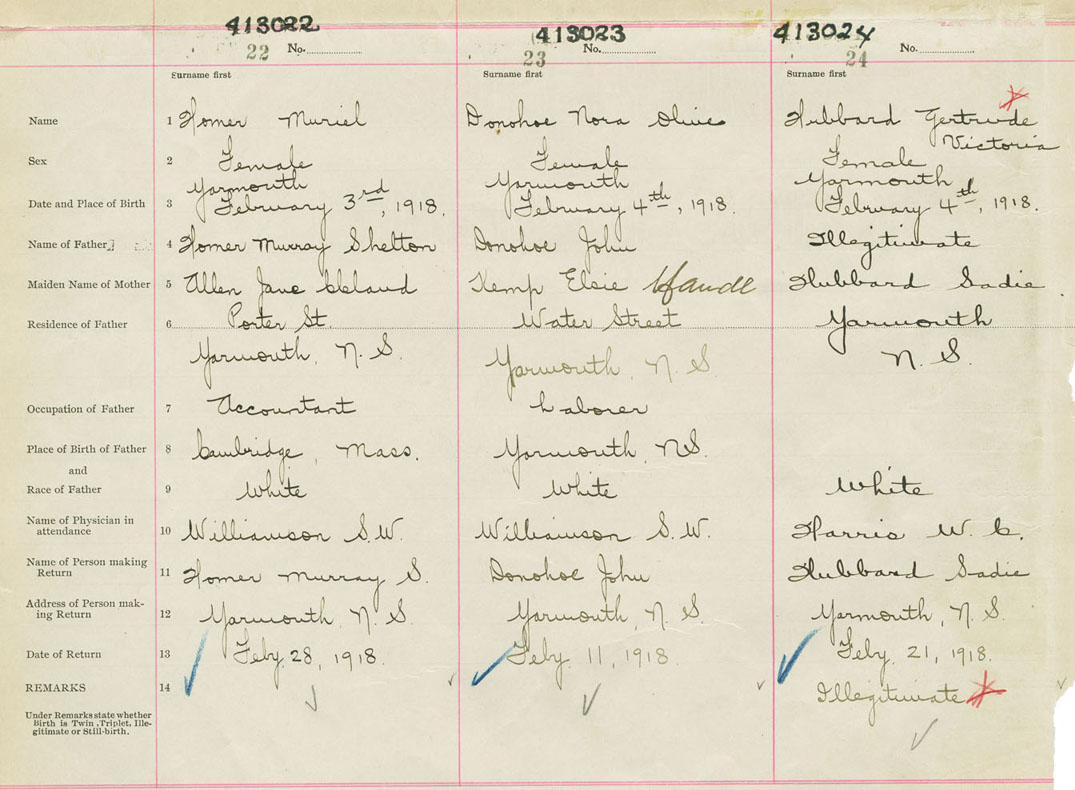 413022 413023 413024
22 No. 23 No. 24 No.
Surname first Surname first Surname first
Name 1 Homer Muriel Donohoe Nora Olive Hubbard Gertrude
Victoria
Sex 2 Female Female Female
Yarmouth Yarmouth Yarmouth
Date and Place of Birth 3 February 3rd, 1918. February 4th, 1918. February 4th, 1918.
Name of Father 4 Homer Murray Shelton Donohoe John Illegitimate
Maiden Name of Mother 5 Allen Jane Kemp Elsie Maude Hubbard Sadie
Residence of Father 6 Porter St. Water Street Yarmouth
Yarmouth, N. S. Yarmouth, N. S. N. S.
Occupation of Father 7 Accountant Laborer
Place of Birth of Father 8 Cambridge, Mass. Yarmouth, NS.
and
Race of Father 9 White White White
Name of Physician in
attendance 10 Williamson S. W. Williamson S. W. Harris W. C.
Name of Person making
Return 11 Homer Murray S. Donohoe John Hubbard Sadie
Address of Person mak-
ing Return 12 Yarmouth, N. S. Yarmouth, N. S. Yarmouth, N. S.
Date of Return 13 Feby. 28, 1918. Feby. 11, 1918. Feby. 21, 1918.
REMARKS 14 Illegitimate
Under Remarks state whether
Birth is Twin, Triplet, Ille-
gitimate or Still-birth.